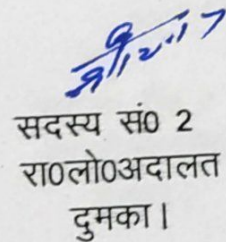 सदस्य सं0 2
रा0लो0अदालत
दुमका।